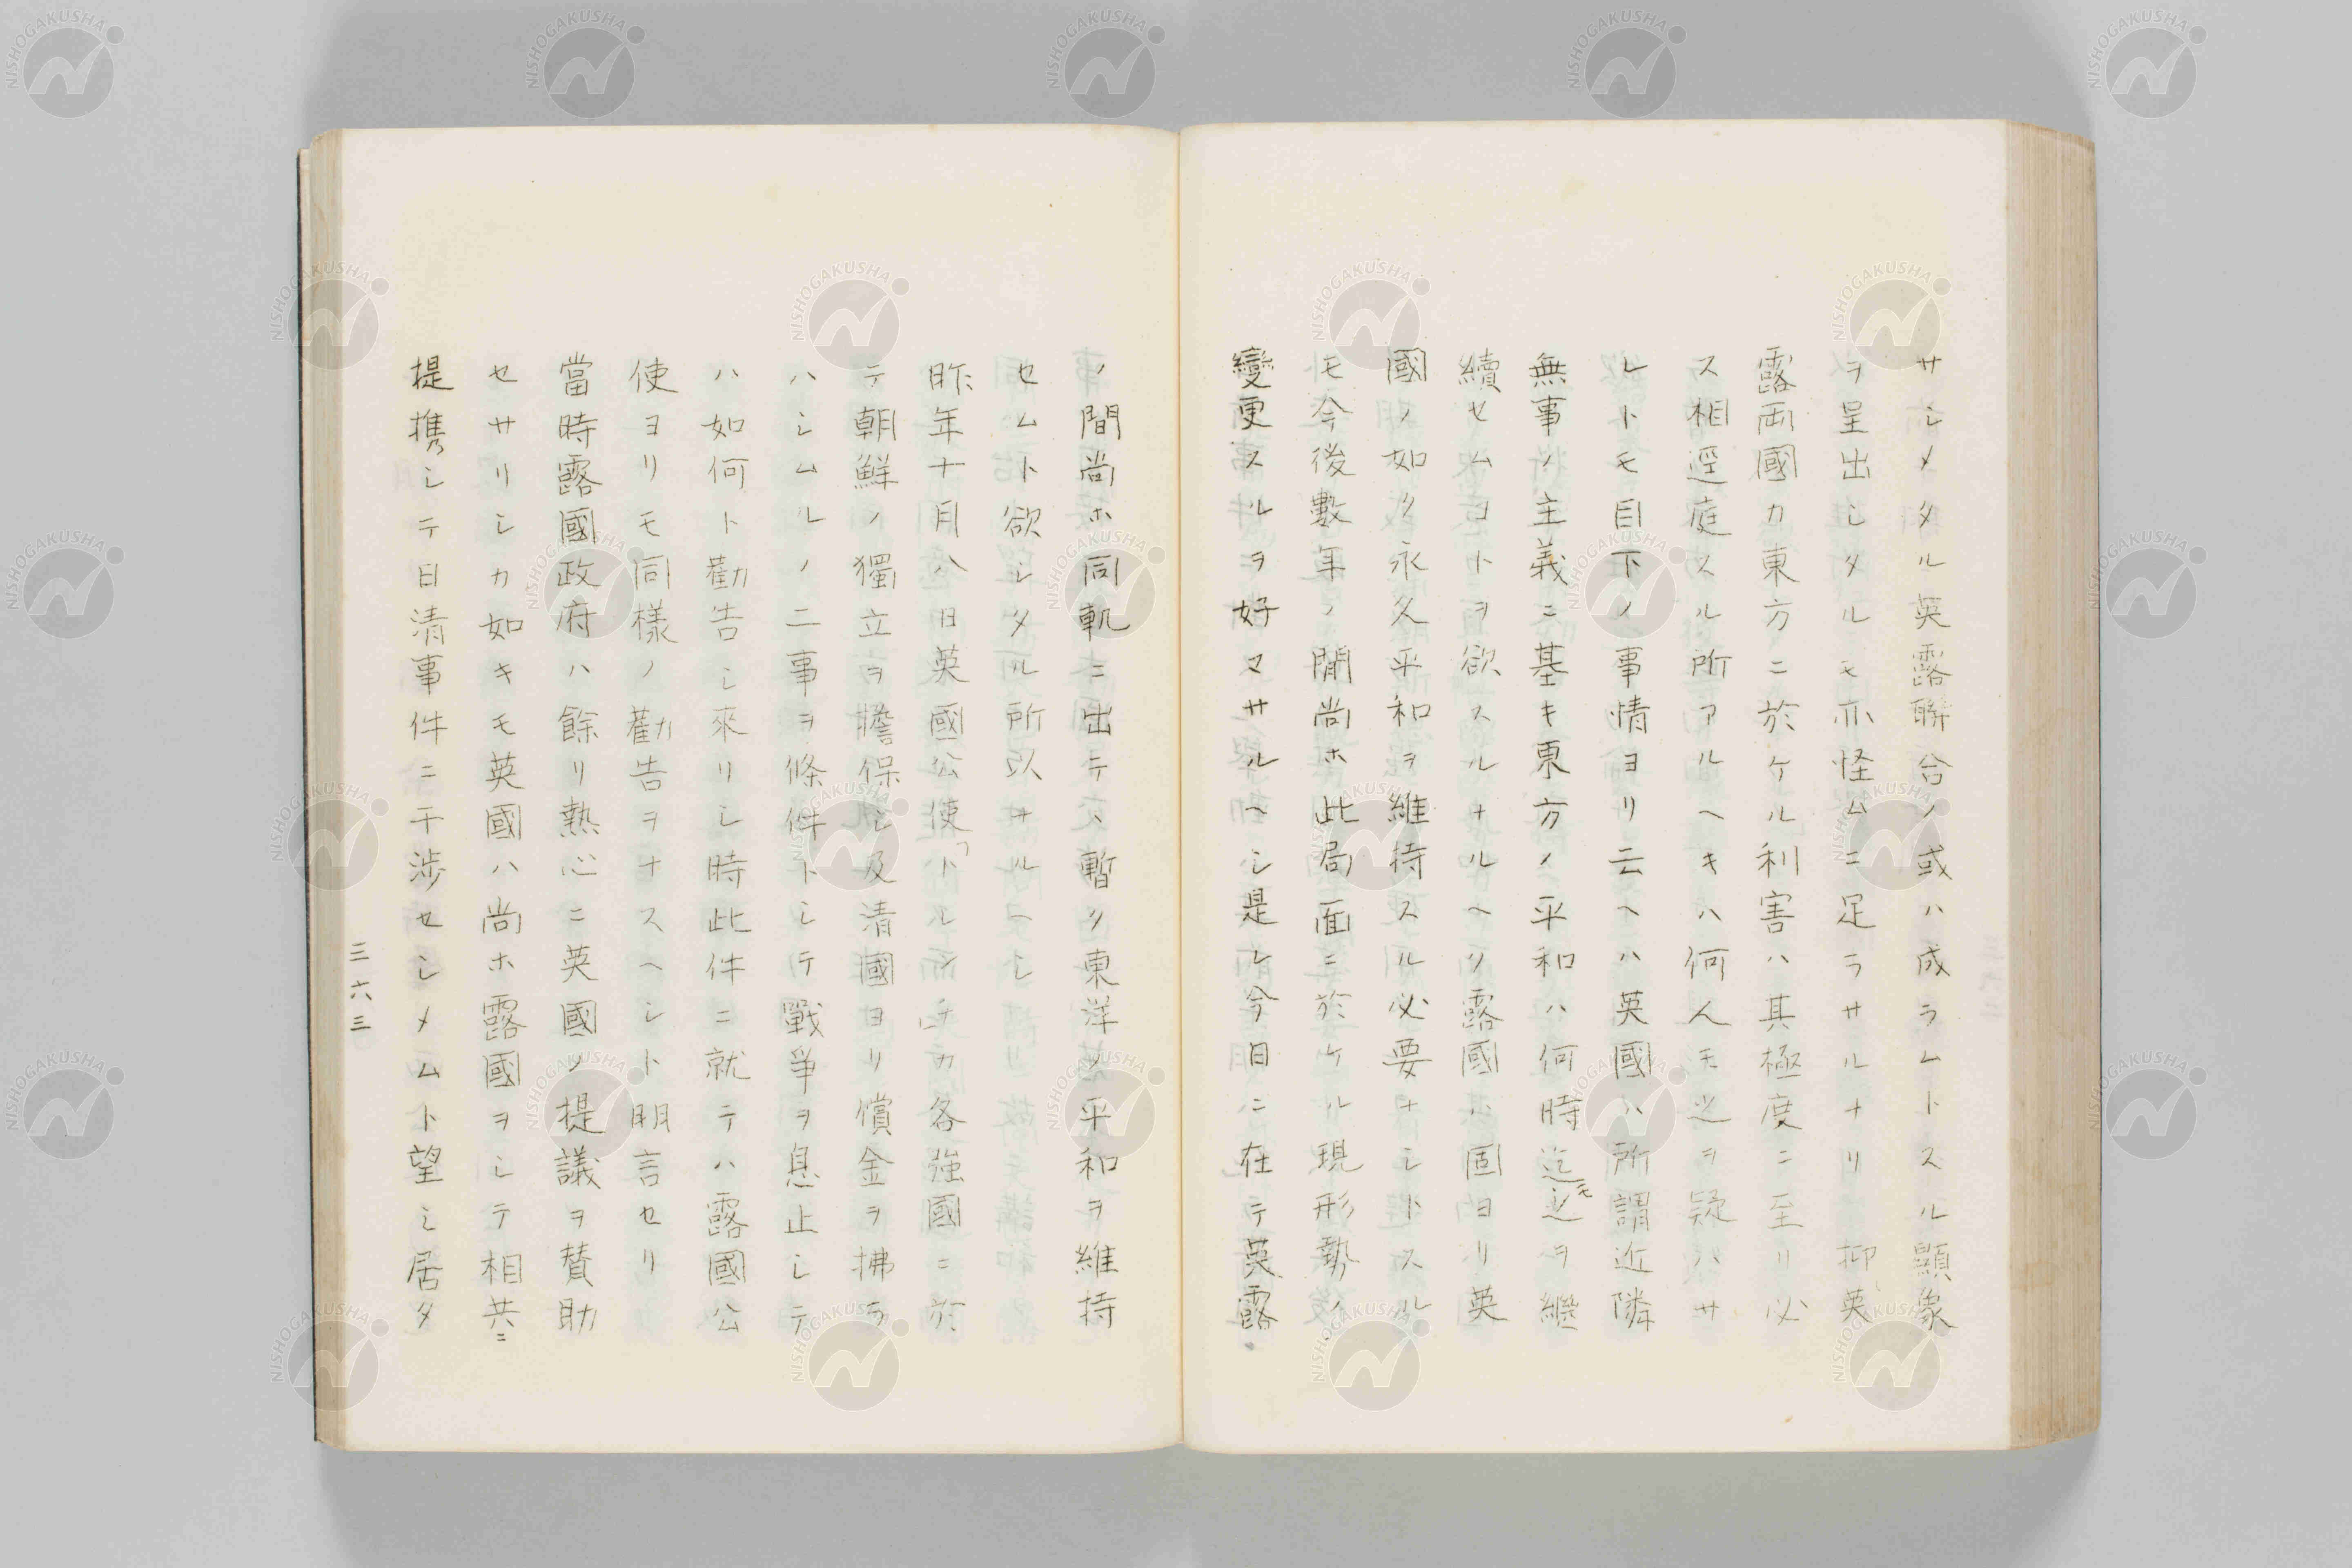 サシメタル英露聯合ノ或ハ成ラムトスル顯象
ヲ呈出シタルモ亦怪ムニ足ラサルナリ抑英
露両國カ東方ニ於ケル利害ハ其極度ニ至リ必
ス相逕庭スル所アルヘキハ何人モ之ヲ疑ハサ
レトモ目下ノ事情ヨリ云ヘハ英國ハ所謂近隣
無事ノ主義ニ基キ東方ノ平和ハ何時迄モ之ヲ繼
續セムヿトヲ欲スルナルヘク露國ハ固ヨリ英
國ノ如ク永久平和ヲ維持スル必要ナシトスル
モ今後數年ノ間尚ホ此局面ニ於ケル現形勢ノ
變更スルヲ好マサルヘシ是レ今日ニ在テ英露
ノ間尚ホ同軌ニ出テ暫ク東洋ノ平和ヲ維持
セムト欲シタル所以ナルヘシ
昨年十月八日英國公使「トレンチ」カ各強國ニ於
テ朝鮮ノ獨立ヲ擔保シ及清國ヨリ償金ヲ拂ラ
ハシムルノ二事ヲ條件トシテ戰爭ヲ息止シテ
ハ如何ト勸告シ來リシ時此件ニ就テハ露國公
使ヨリモ同様ノ勸告ヲナスヘシト明言セリ
當時露國政府ハ餘リ熱心ニ英國ノ提議ヲ賛助
セサリシカ如キモ英國ハ尚ホ露國ヲシテ相共ニ
提携シテ日清事件ニ干渉セシメムト望シ居タ
三六三
NISHOGAKUSHA